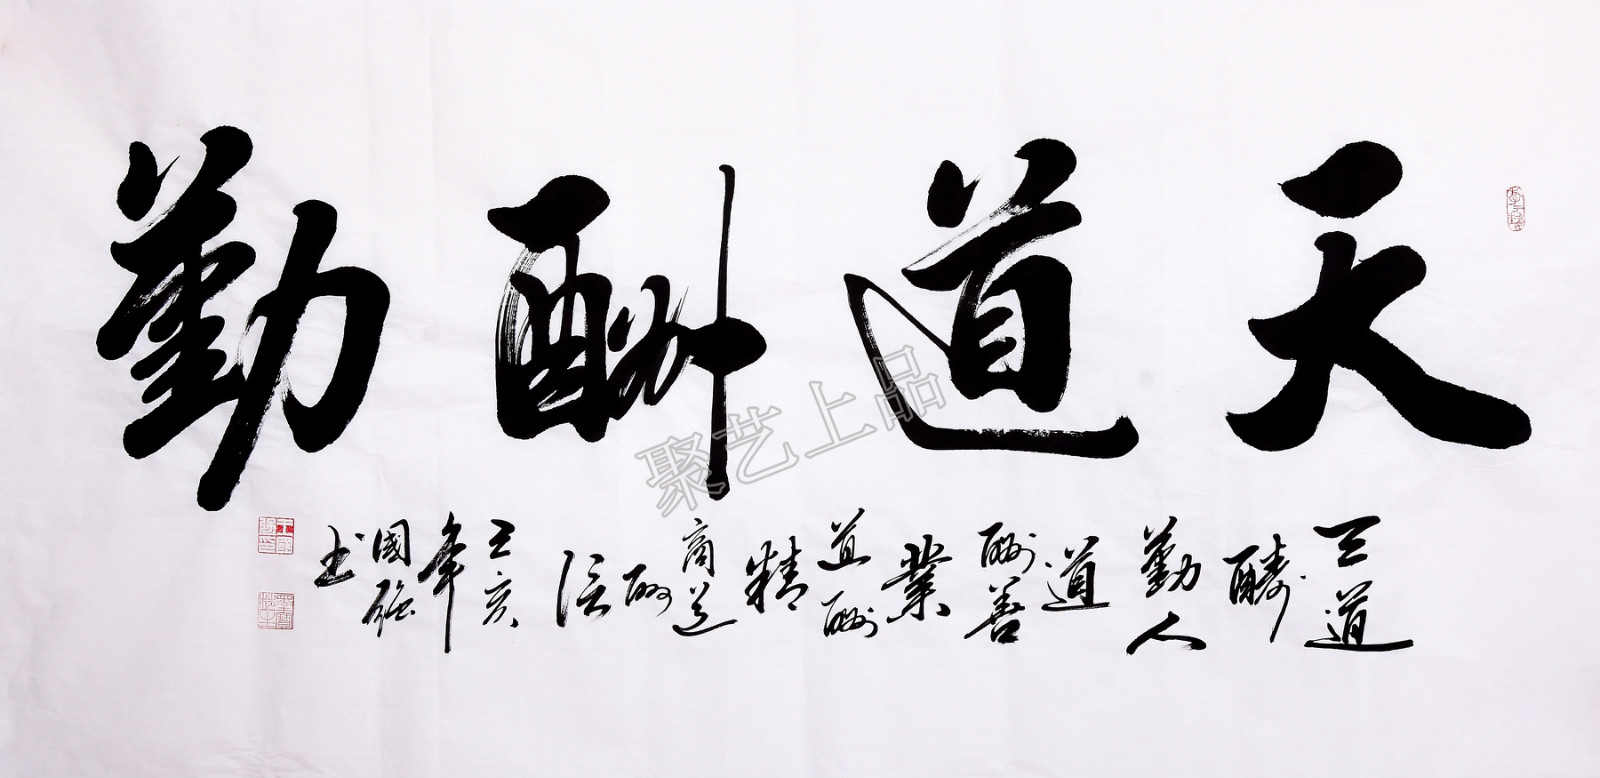 天道酬勤
天道
醻
勤人
道
酬善
業
道酬
精
商道
酬
信
己亥
年
國強
书
聚艺上品